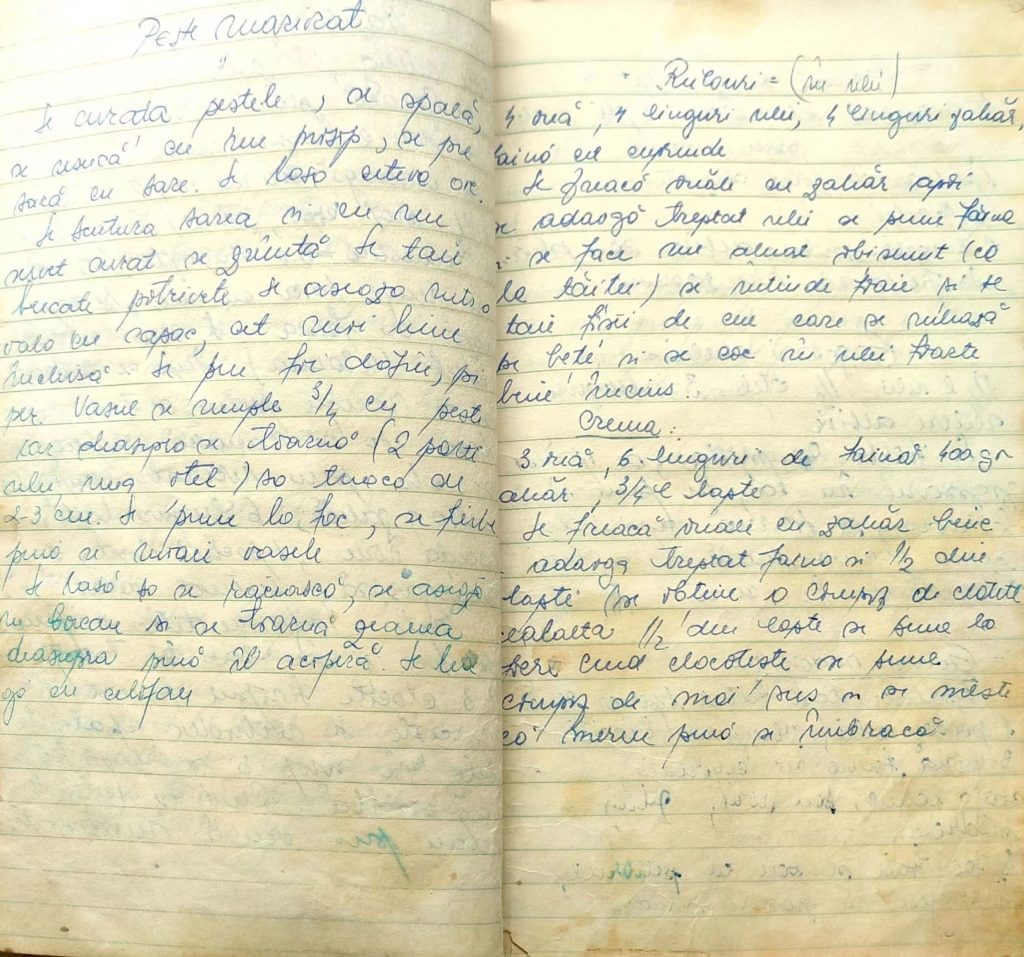 Pește marinat
Se curata pestele, se spală,
se usucă cu un prosop, se pre
sacă cu sare. Se lasă citeva ore.
Se scutura sarea si cu un
servet curat se zvîntă Se taie
bucati potrivite Se aseaza intr-o
vala cu capac, cit mai bine
închisă Se pun foi dafin, pi
per. Vasul se umple 3/4 cu peste
iar deasupra se toarnă (2 parti
ulei, una otet) să treacă de
2-3 cm. Se pune la foc, se fierbe
pină se moaie oasele
Se lasă să se răcească, se aseză
in borcan si se toarnă zeama
deasupra pînă îl acoperă. Se lea
gă cu celofan
Rulouri = (în ulei)
4 ouă, 4 linguri ulei, 4 linguri zahăr,
faină cit cuprinde
Se freacă ouăle cu zahăr apoi
se adaogă treptat ulei se pune făina
se face un aluat obisnuit (ca
la tăitei) se intinde foaie si se
taie fîsii de cm care se
pe bete si se coc în ulei foarte
bine încins.
Crema:
3 ouă, 6 linguri de faină 400 gr
zahăr, 3/4 l lapte
Se freacă ouale cu zahăr bine
adaoga treptat faina si 1/2 din
lapte (se obtine o compoz de clătite
cealaltă 1/2 din lapte se pune la
fiert Cînd clocoteste se pune
compoz de mai sus si se meste
că mereu pină se îmbracă